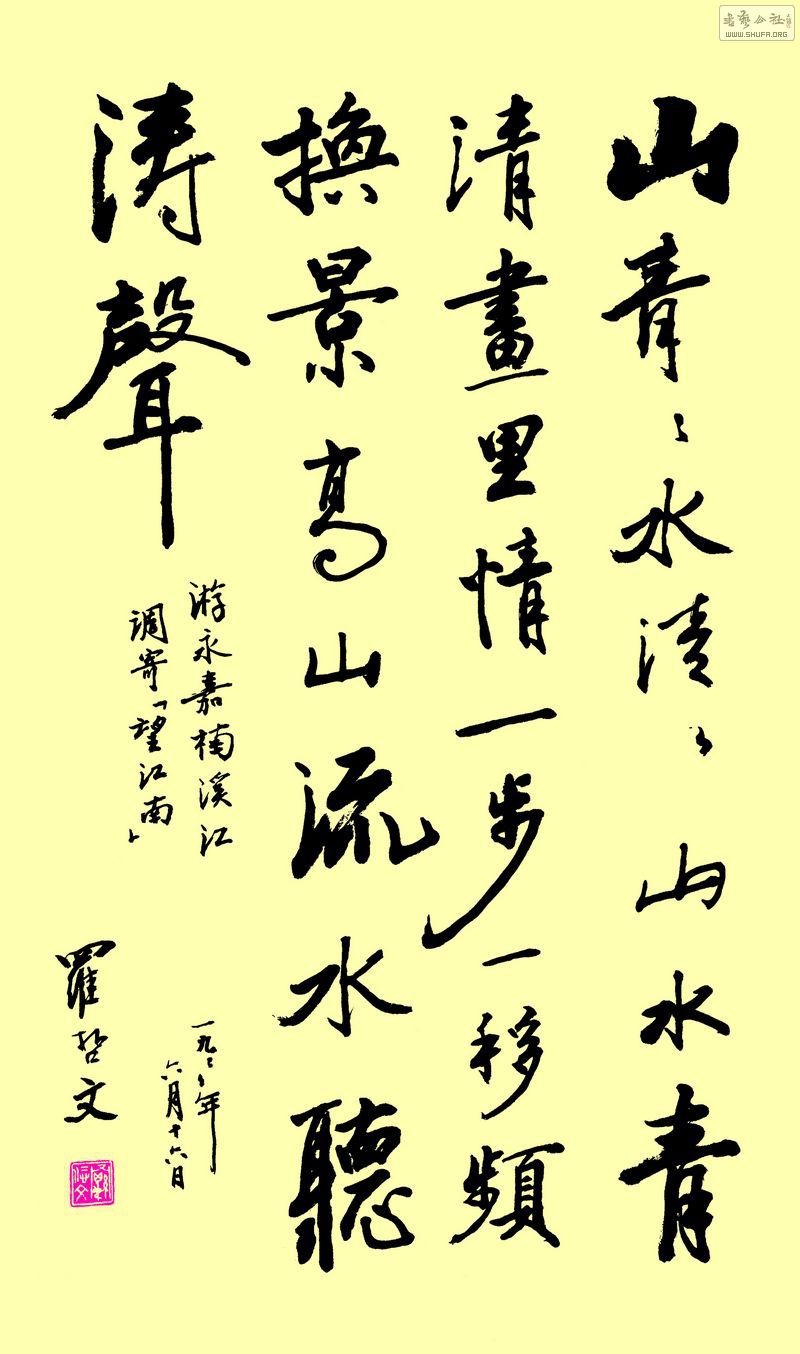 山青〻水清〻山水青
清畫里情一步一移頻
換景高山流水聽
涛聲
游永嘉楠溪江
調寄「望江南」
一九〻〻年
六月十六日
羅哲文
書藝公社
WWW.SHUFA.ORG